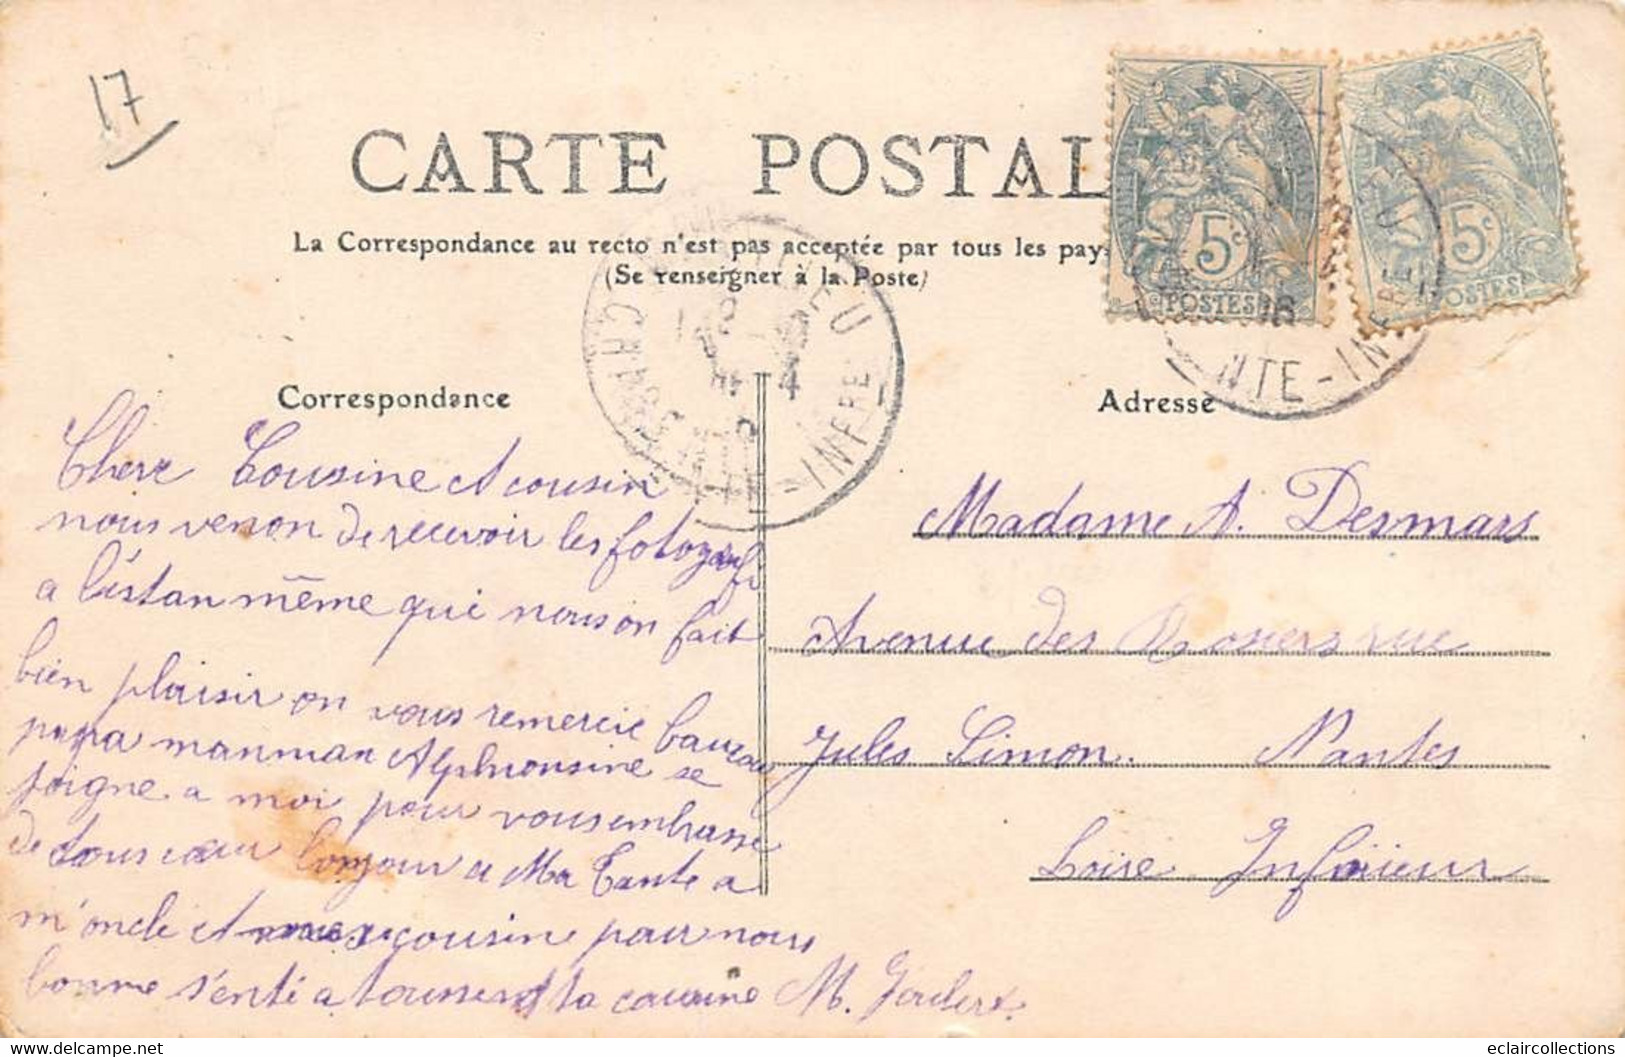 17
CARTE POSTAL
La Correspondance au recto n'est pas acceptée par tous les pay
(Se renseigner à la Poste)
5c
POSTES
5c
POSTES
NTE-INFRE
CHARENTE-INFRE
Correspondance
Chere Cousine et cousin
nous venon de recevoir les fotografi
a l'istan même qui nous on fait
bien plaisir on vous remercie
papa manman Alphonsine se
joigne a moi pour vous embrasse
de tous cœur bonjour a Ma Tante a
m'oncle et cousin pour nous
bonne s'enté a tousse ta M. Joubert
Adresse
Madame A. Desmars
Avenue des Rosiers rue
Jules Simon. Nantes
Loire Inférieur
delcampe.net
eclaircollections